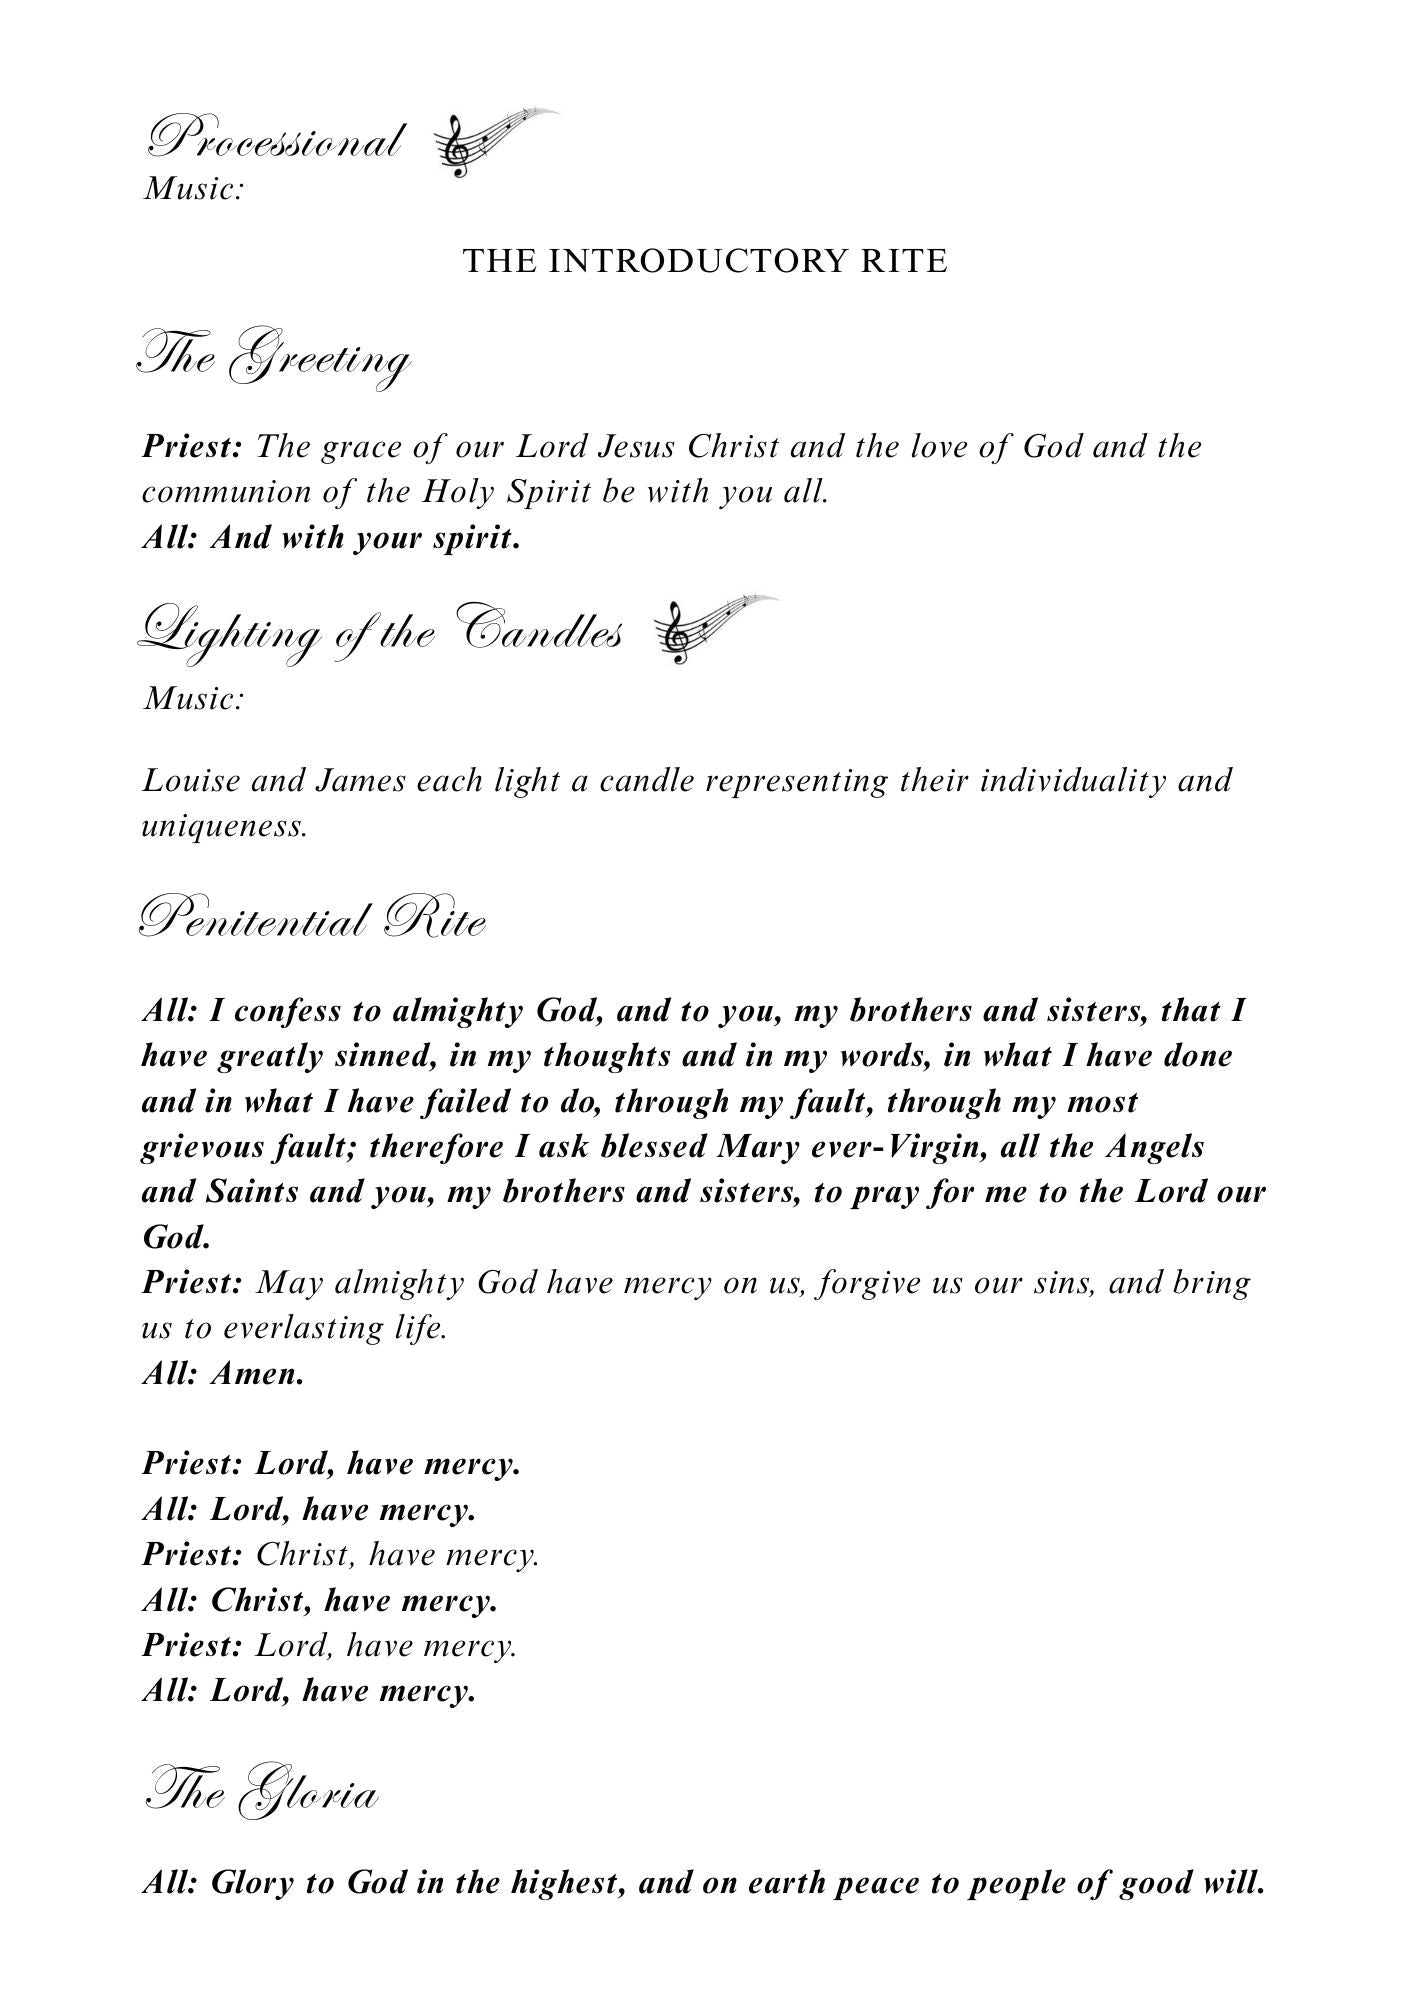 Processional
Music:
THE INTRODUCTORY RITE
The Greeting
Priest: The grace of our Lord Jesus Christ and the love of God and the
communion of the Holy Spirit be with you all.
All: And with your spirit.
Lighting of the Candles
Music:
Louise and James each light a candle representing their individuality and
uniqueness.
Penitential Rite
All: I confess to almighty God, and to you, my brothers and sisters, that I
have greatly sinned, in my thoughts and in my words, in what I have done
and in what I have failed to do, through my fault, through my most
grievous fault; therefore I ask blessed Mary ever-Virgin, all the Angels
and Saints and you, my brothers and sisters, to pray for me to the Lord our
God.
Priest: May almighty God have mercy on us, forgive us our sins, and bring
us to everlasting life.
All: Amen.
Priest: Lord, have mercy.
All: Lord, have mercy.
Priest: Christ, have mercy.
All: Christ, have mercy.
Priest: Lord, have mercy.
All: Lord, have mercy.
The Gloria
All: Glory to God in the highest, and on earth peace to people of good will.